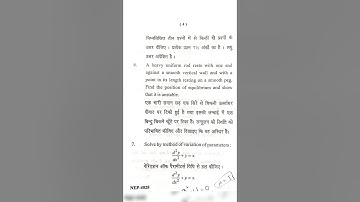 ( 4 )
निम्नलिखित तीन प्रश्नों में से किन्हीं दो प्रश्नों के
उत्तर दीजिए । प्रत्येक प्रश्न 7½ अंकों का है । लघु
उत्तर अपेक्षित है ।
6. A heavy uniform rod rests with one end
against a smooth vertical wall and with a
point in its length resting on a smooth peg.
Find the position of equilibrium and show
that it is unstable.
एक भारी समान छड़ एक सिरे से चिकनी ऊर्ध्वाधर
दीवार पर टिकी हुई है तथा इसकी लम्बाई में एक
बिन्दु चिकने खूँटे पर स्थिर है। सन्तुलन की स्थिति को
परिभाषित कीजिए और दिखाइए कि यह अस्थिर है।
7. Solve by method of variation of parameters :
d²y/dx² + y = x
वेरिएशन ऑफ पैरामीटर्स विधि से हल कीजिए :
d²y/dx² + y = x
NEP-4028